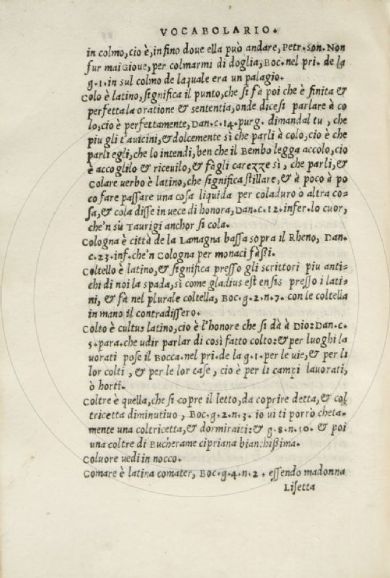 VOCABOLARIO.
in colmo, cio è, in fino doue ella può andare, Petr. son. Non
fur mai Gioue, per colmarmi di doglia, Boc. nel pri. de la
g. 1. in sul colmo de la quale era un palagio.
Colo è latino, significa il punto, che si fà poi che è finita &
perfetta la oratione & sententia, onde dicesi parlare à co
lo, cio è perfettamente, Dan. c. 14. purg. dimandal tu, che
piu gli t'auicini, & dolcemente sì che parli à colo, cio è che
parli egli, che lo intendi, ben che il Bembo legga accolo, cio
è accoglilo & riceuilo, & fàgli carezze sì, che parli, &
Colare uerbo è latino, che significa stillare, & à poco à po
co fare passare una cosa liquida per coladuro o altra co-
sa, & cola disse in uece di honora, Dan. c. 12. infer. lo cuor,
che'n sù Taurigi anchor si cola.
Cologna è città de la Lamagna bassa sopra il Rheno, Dan.
c. 23. inf. che'n Cologna per monaci fassi.
Coltello è latino, & significa presso gli scrittori piu anti-
chi di noi la spada, sì come gladius est ensis presso i lati-
ni, & fà nel plurale coltella, Boc. g. 2. n. 7. con le coltella
in mano il contradissero.
Colto è cultus latino, cio è l'honore che si dà à Dio: Dan. c.
5. para. che udir parlar di così fatto colto: & per luoghi la
uorati pose il Bocca. nel pri. de la g. 1. per le uie, & per li
lor colti, & per le lor case, cio è per li campi lauorati,
ò horti.
Coltre è quella, che si copre il letto, da coprire detta, & col
tricetta diminutiuo, Boc. g. 2. n. 3. io ui ti porrò cheta-
mente una coltricetta, & dormirati: & g. 8. n. 10. & poi
una coltre di Bucherame cipriana bianchissima.
Coluore uedi in nocco.
Comare è latina comater, Boc. g. 4. n. 2. essendo madonna
Lisetta